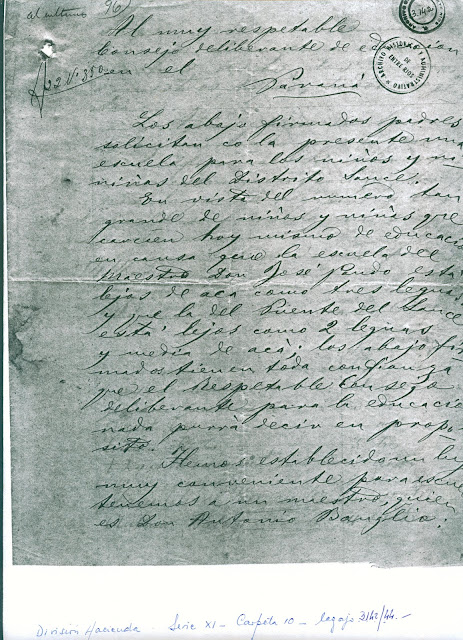 96
3142
Al muy respetable
Consejo deliberante de educacion
en el
Paraná
ARCHIVO HISTORICO Y ADMINISTRATIVO
ENTRE RIOS
Los abajo firmados padres
solicitan co la presente una
escuela para los niños y
niñas del Distrito Sauce.
En vista del numero tan
grande de niños y niñas que
carecien hoy mismo de educacio
en causa que la escuela del
Maestro Don José Pardo esta
lejos de aca como tres legua
y que la del Puente del Sauce
está lejos como 2 leguas
y media de acá; los abajo fir
mados tienen toda confianza
que el Respetable Consejo
deliberante para la educacio
nada purrá decir en propo-
sito.
Hemos establecido un lu
muy conveniente para escue
tenemos a un maestro, quien
es Don Antonio Baviglio.
División Hacienda - Serie XI - Carpeta 10 - legajo 3142/44.-